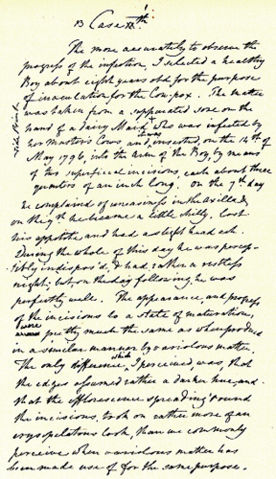 B Case 17th
The more accurately to observe the
progress of the infection, I selected a healthy
Boy about eight years old for the purpose
of inoculation for the Cow-pox. The matter
was taken from a suppurated sore on the
hand of a dairy Maid Who was infected by
her Master's Cows and was inserted, on the 14th of
May 1796, into the arm of the Boy, by means
of two superficial incisions, each about three
quarters of an inch long. On the 7th day
he complained of uneasiness in the axilla &
on the 9th he became a little chilly, lost
his appetite and had a slight head ach.
During the whole of this day he was percep-
tibly indispos'd, & had rather a restless
night; but on the day following, he was
perfectly well. The appearance and progress
of the incisions to a state of maturation,
were pretty much the same as when produced
in a similar manner by variolous matter.
The only difference, which I perceived, was, that
the edges assumed rather a darker hue, and
that the efflorescence spreading round
the incisions, took on rather more of an
erysipelatous look, than we commonly
perceive when variolous matter has
been made use of for the same purpose.